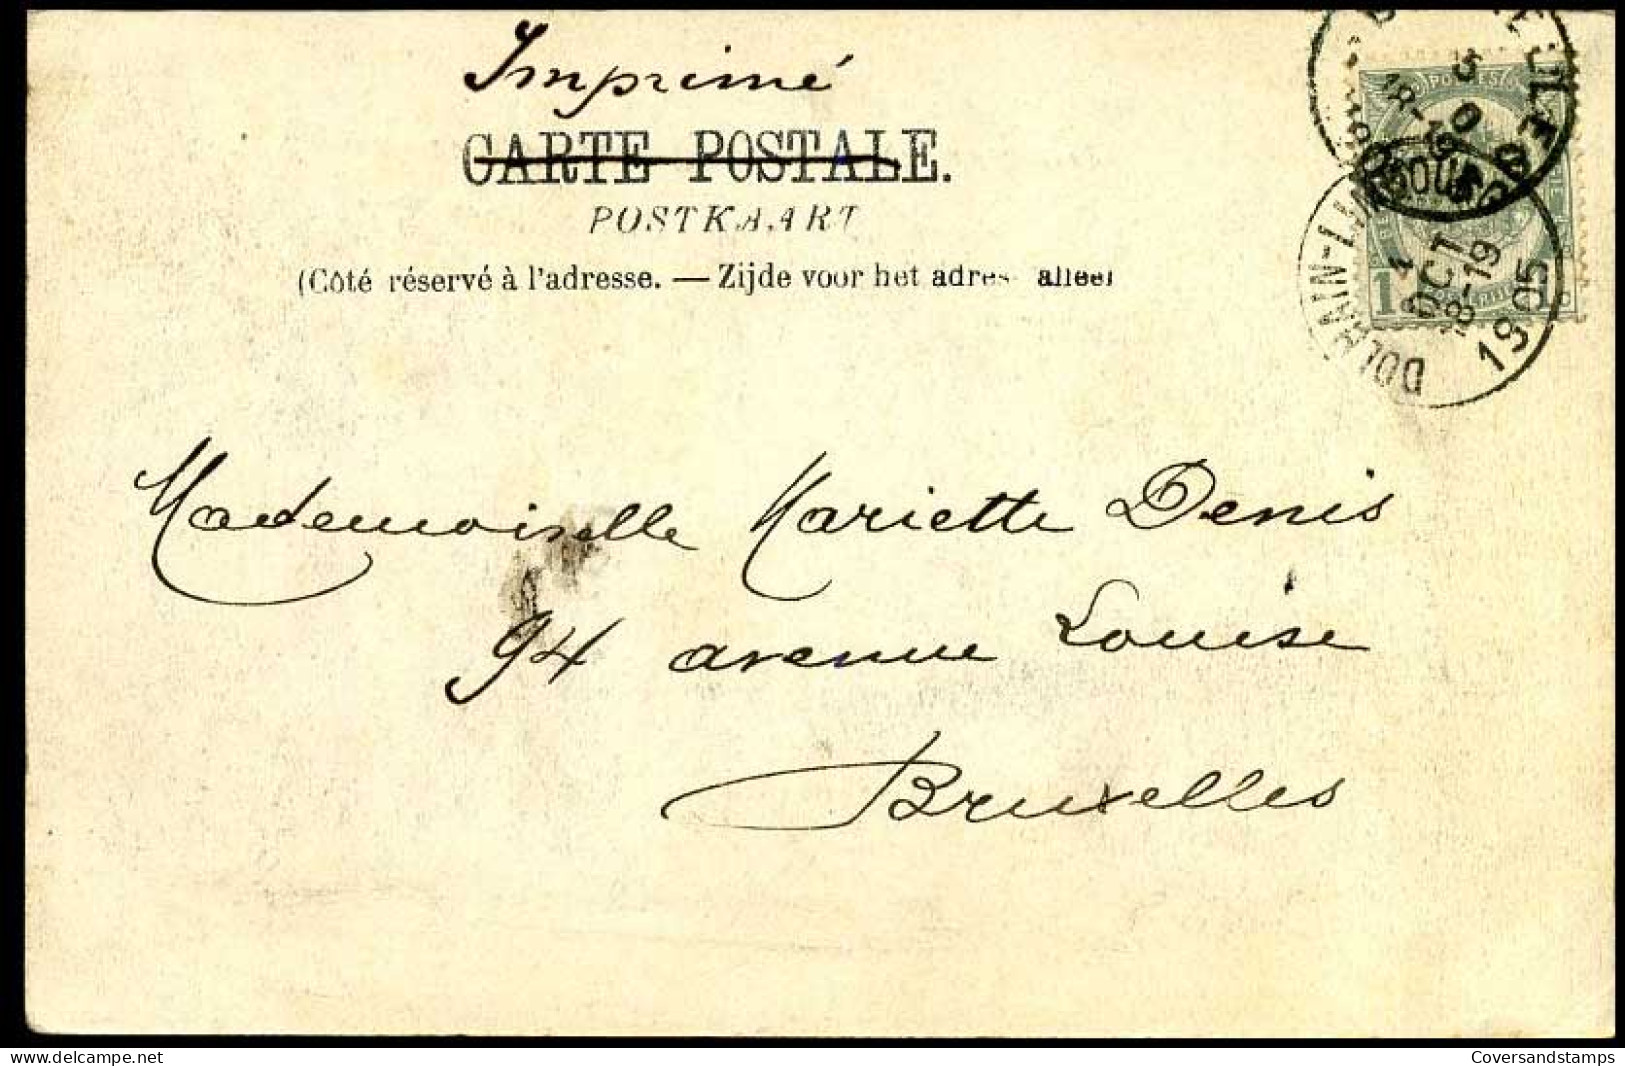 Imprimé
CARTE POSTALE.
POSTKAART
(Côté réservé à l'adresse. — Zijde voor het adres alleen)
POSTES
1
DOLHAIN-LIM
OCT
18-19
1905
Mademoiselle Mariette Denis
94 avenue Louise
Bruxelles
delcampe.net
Coversandstamps